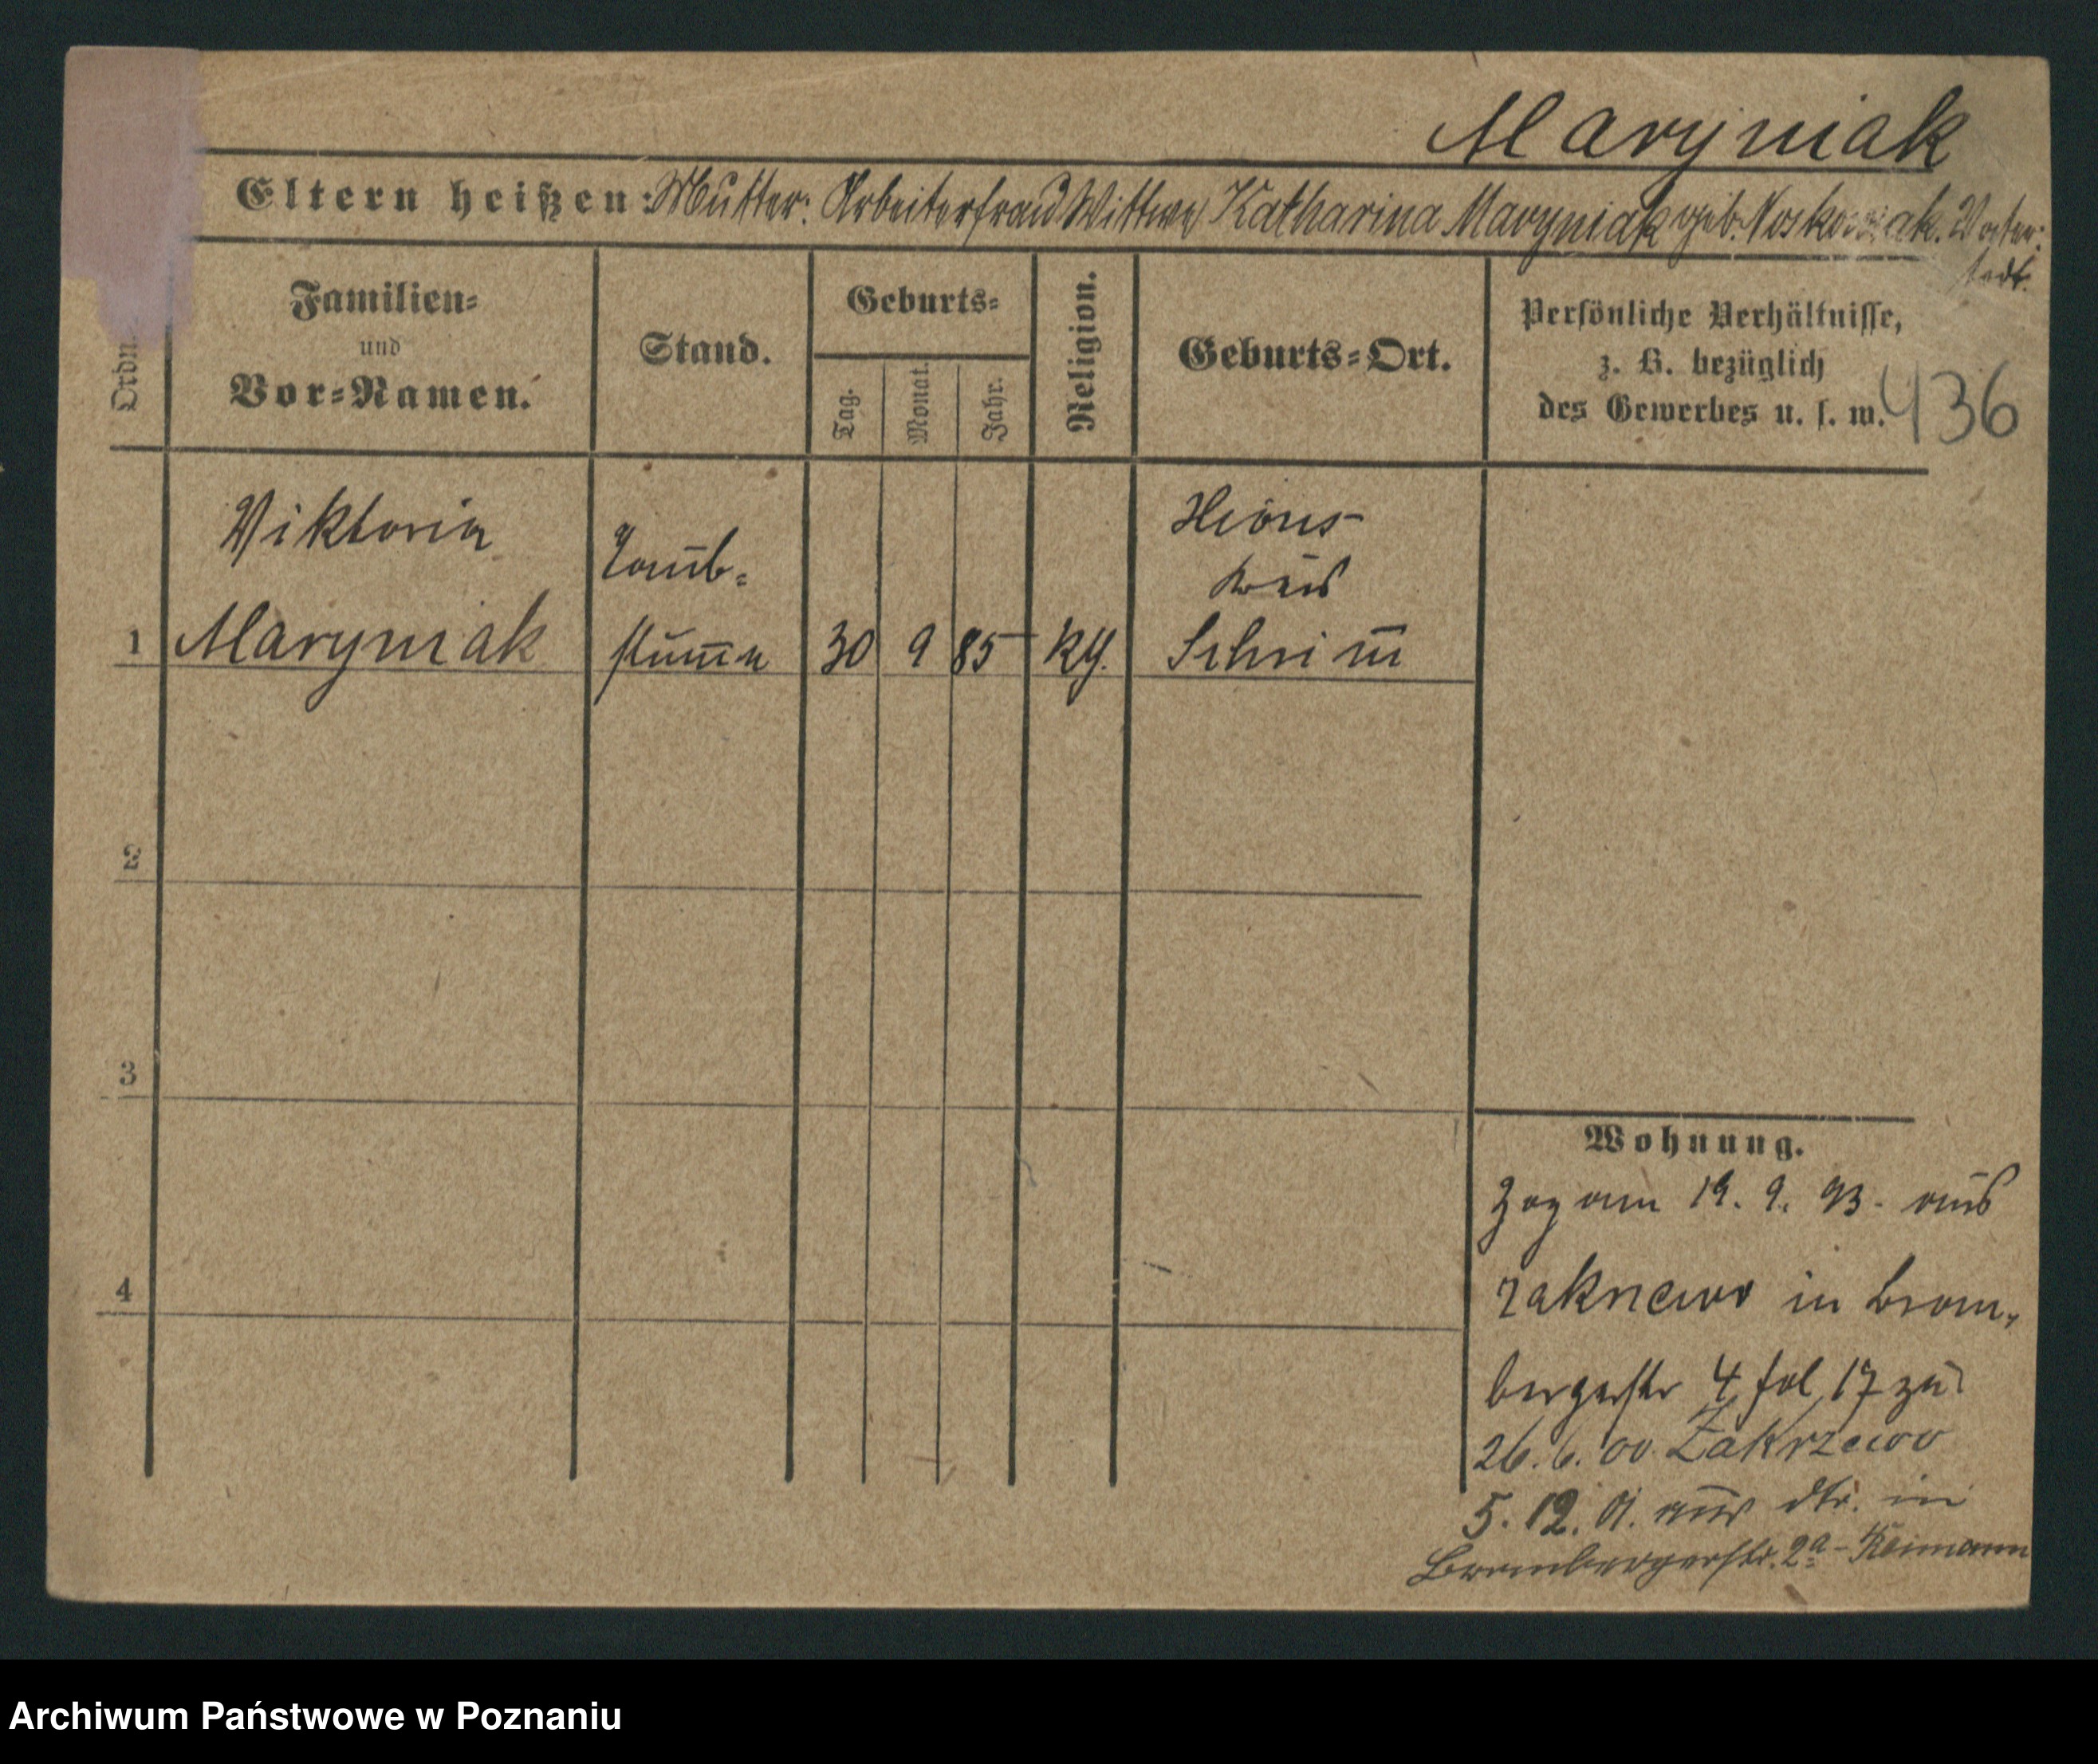 Maryniak
Eltern heißen: Mutter: Arbeiterfrau Wittwe Katharina Maryniak geb. Noskowiak. Vater:
todt.
Ordn.
Familien-
und
Vor-Namen.
Stand.
Geburts-
Tag.
Monat.
Jahr.
Religion.
Geburts-Ort.
Persönliche Verhältnisse,
z. B. bezüglich
des Gewerbes u. s. w.
436
1
Viktoria
Maryniak
Taub-
stumm
30
9
85
Kreis
Schrimm
2
3
4
Wohnung.
Zog am 19. 9. 93. aus
in Brom-
bergerstr 4 fol 17 zu
26. 6. 00. Zakrzewo
5. 12. 01. aus dto. in
Brombergerstr. 2a - Reimann
Archiwum Państwowe w Poznaniu